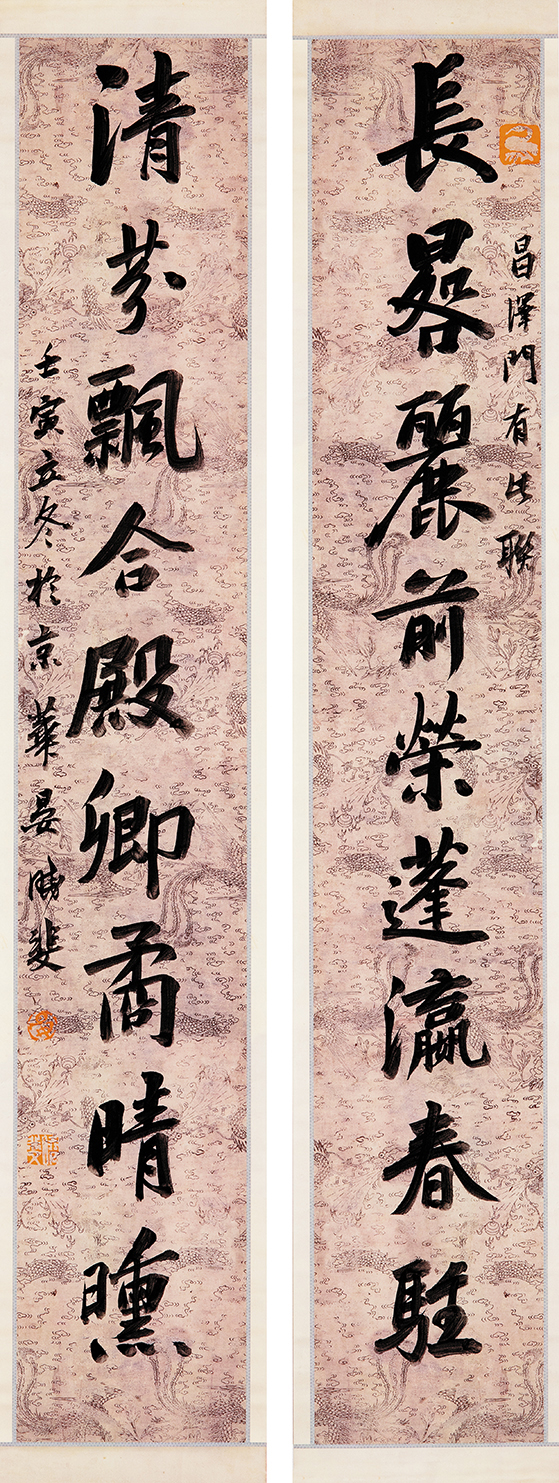 長晷麗前榮蓬瀛春駐
昌澤門有此聯
清芬飄合殿卿矞晴曛
壬寅立冬於京華晏晴斐